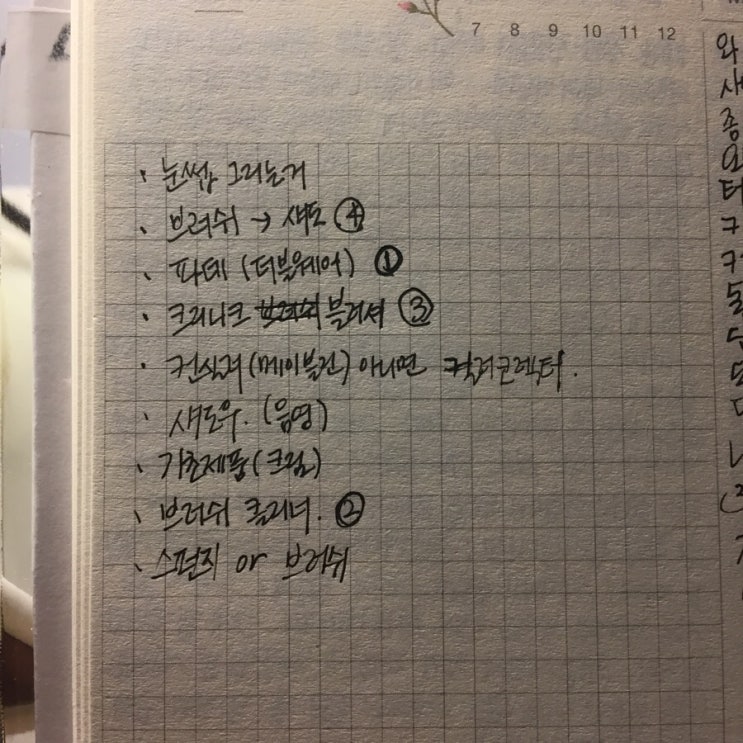 7 8 9 10 11 12
· 눈썹 그리는거
· 브러쉬 → 섀도 ④
· 파데 (더블웨어) ①
· 크리니크 블러셔 ③
· 컨실러 (메이블린) 아니면 컬러코렉터.
· 섀도우. (음영)
· 기초제품 (크림)
· 브러쉬 클리너. ②
· 스펀지 or 브러쉬
와
종
요
터